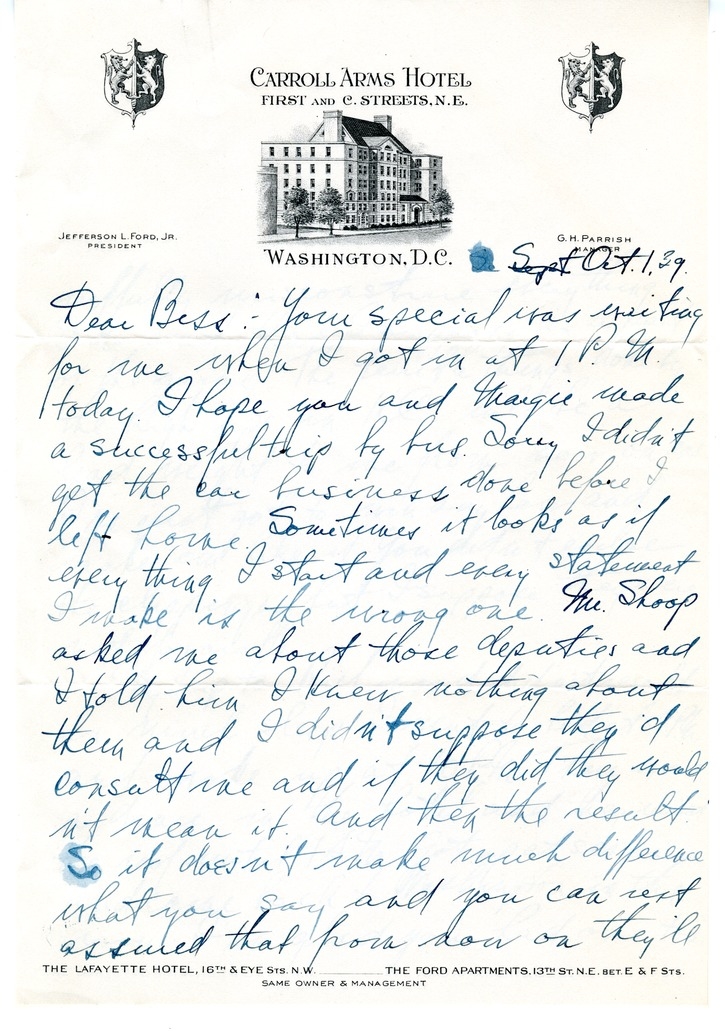 CARROLL ARMS HOTEL
FIRST AND C. STREETS, N.E.
JEFFERSON L. FORD, JR.
PRESIDENT
G. H. PARRISH
MANAGER
WASHINGTON, D.C.
Sept Oct. 1, 39.
Dear Bess:- Your special was waiting
for me when I got in at 1 P.M.
today. I hope you and Margie made
a successful trip by bus. Sorry I didn't
get the car business done before I
left home. Sometimes it looks as if
every thing I start and every statement
I make is the wrong one. Mr. Shoop
asked me about those deputies and
I told him I knew nothing about
them and I didn't suppose they'd
consult me and if they did they would
n't mean it. And then the result.
So it doesn't make much difference
what you say and you can rest
assured that from now on they'll
THE LAFAYETTE HOTEL, 16TH & EYE STS. N.W. THE FORD APARTMENTS, 13TH ST. N.E. BET. E & F STS.
SAME OWNER & MANAGEMENT